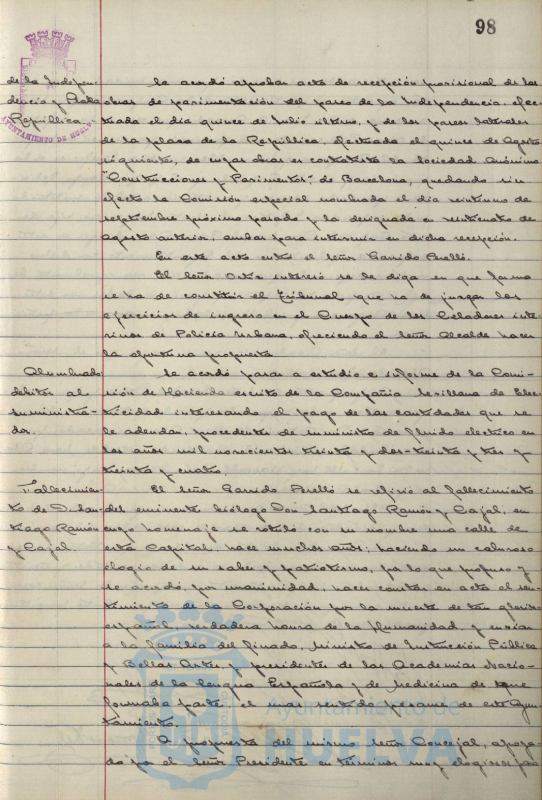 98
de la Indepen-
dencia y Plaza
República.
AYUNTAMIENTO DE HUELVA
Se acordó aprobar acta de recepción provisional de las
obras de pavimentación del paseo de la Independencia, efec-
tuada el día quince de Julio último, y de los paseos laterales
de la plaza de la República, efectuada el quince de Agosto
siguiente, de cuyas obras es contratista la Sociedad Anónima
"Construcciones y Pavimentos", de Barcelona, quedando sin
efecto la Comisión especial nombrada el día veintiuno de
septiembre próximo pasado y la designada en veinticuatro de
Agosto anterior, ambas para intervenir en dicha recepción.
En este acto entró el señor Garrido Perelló.
El señor Ortiz interesó se le diga en que forma
se ha de constituir el Tribunal que ha de juzgar los
ejercicios de ingreso en el Cuerpo de los Celadores inte-
rinos de Policía Urbana, ofreciendo el señor Alcalde hacer
la oportuna propuesta.
Alumbrado
débitos al
suministra-
dor.
Se acordó pasar a estudio e informe de la Comi-
sión de Hacienda escrito de la Compañía Sevillana de Elec-
tricidad interesando el pago de las cantidades que se
le adeudan, procedentes de suministro de fluido eléctrico en
los años mil novecientos treinta y dos-treinta y tres y
treinta y cuatro.
Fallecimien-
to de D. San-
tiago Ramón
y Cajal.
El señor Garrido Perelló se refirió al fallecimiento
del eminente biólogo Don Santiago Ramón y Cajal, en
cuyo homenaje se rotuló con su nombre una calle de
esta Capital, hace muchos años; haciendo un caluroso
elogio de su saber y patriotismo, por lo que propuso y
se acordó, por unanimidad, hacer constar en acta el sen-
timiento de la Corporación por la muerte de tan glorioso
español, verdadera honra de la Humanidad, y enviar
a la familia del finado, Ministro de Instrucción Pública
y Bellas Artes y presidentes de las Academias Nacio-
nales de la Lengua Española y de Medicina de que
formaba parte, el más sentido pésame de este Ayun-
tamiento.
A propuesta del mismo señor Concejal, apoya-
do por el señor Presidente en términos muy elogiosos para
Ayuntamiento de
HUELVA